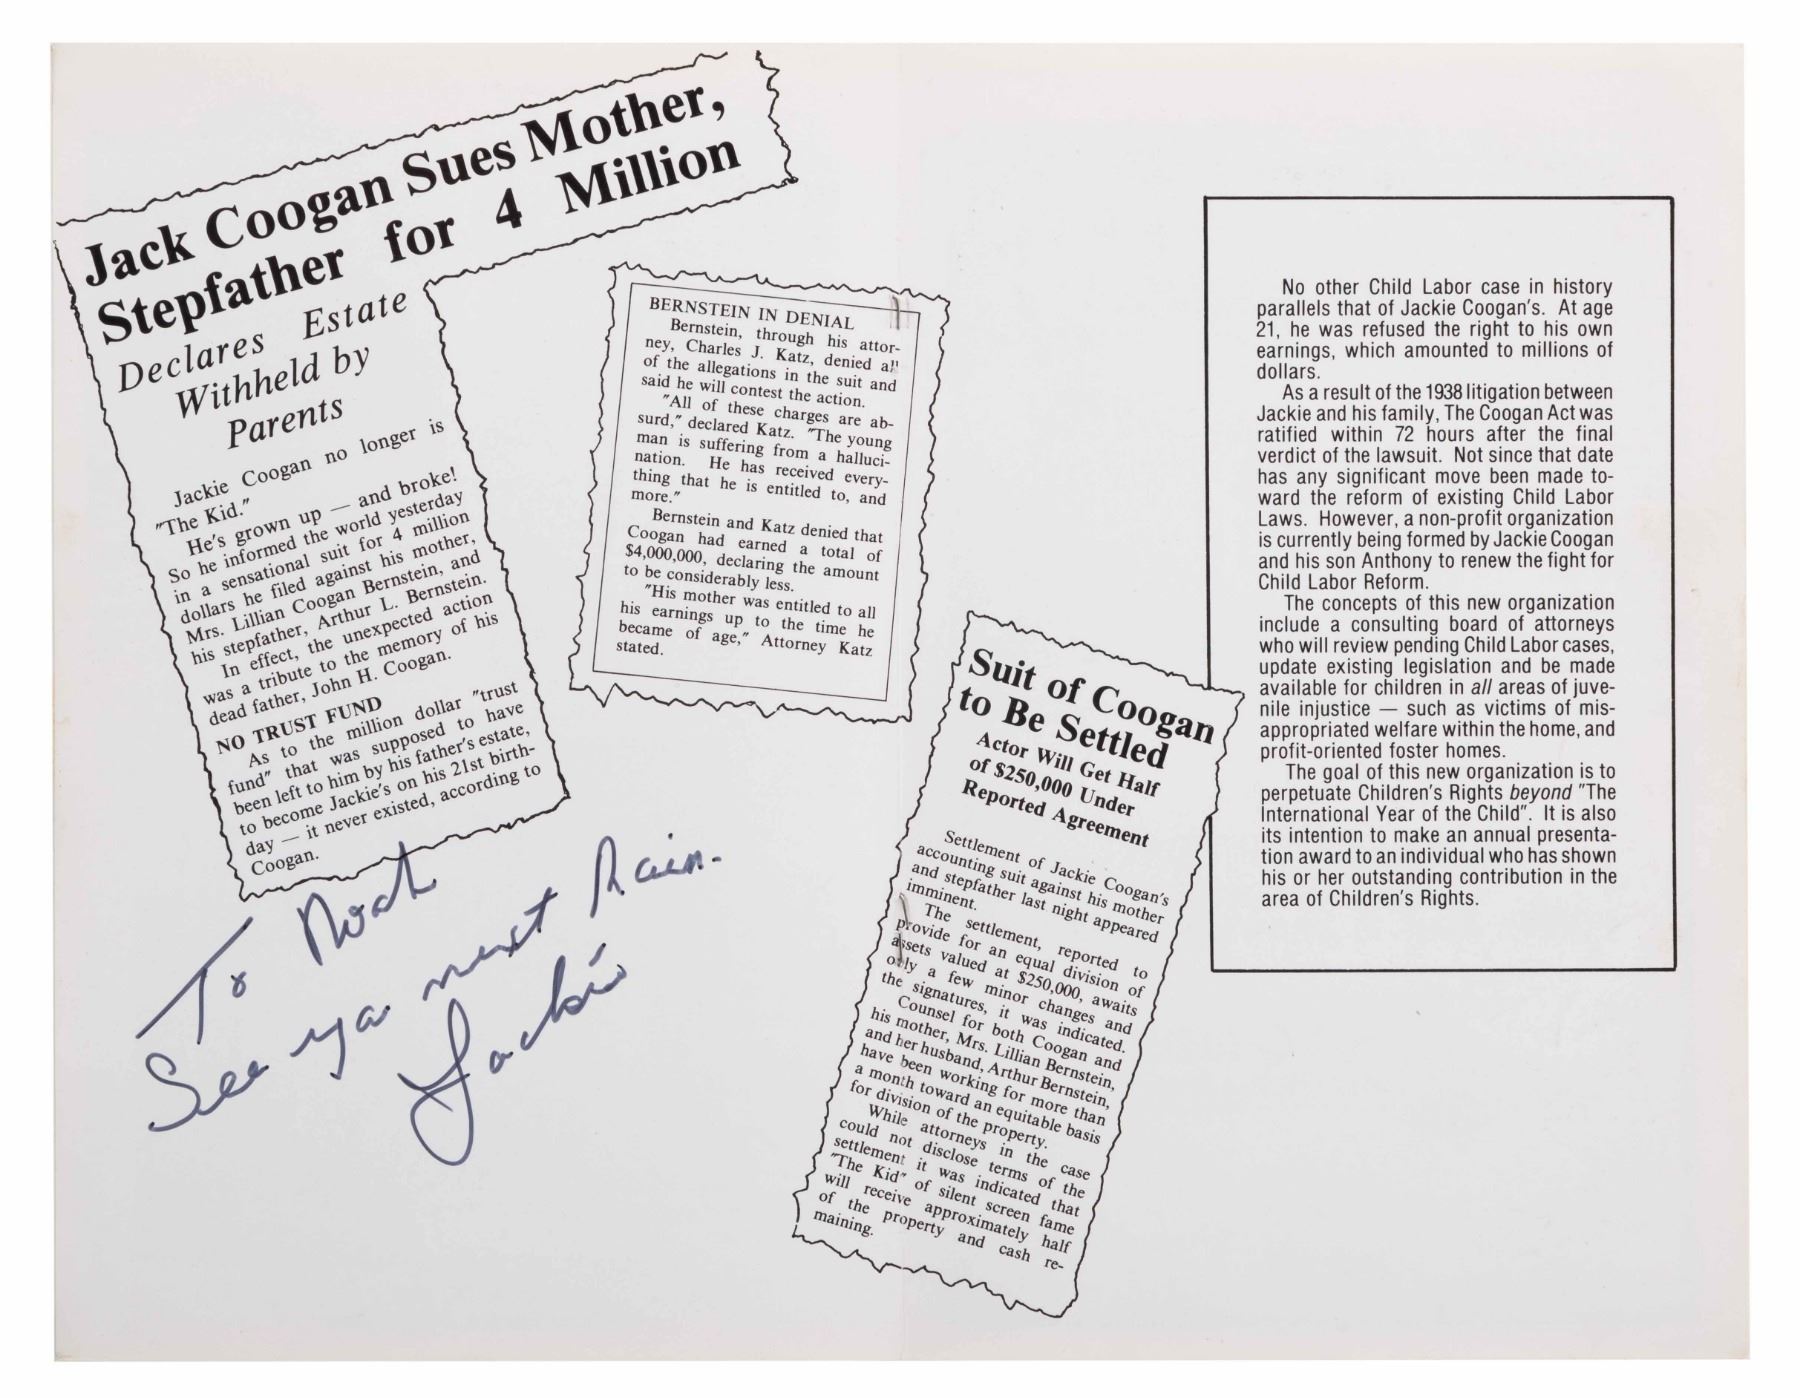 Jack Coogan Sues Mother,
Stepfather for 4 Million
Declares Estate
Withheld by
Parents
Jackie Coogan no longer is
"The Kid."
He's grown up — and broke!
So he informed the world yesterday
in a sensational suit for 4 million
dollars he filed against his mother,
Mrs. Lillian Coogan Bernstein, and
his stepfather, Arthur L. Bernstein.
In effect, the unexpected action
was a tribute to the memory of his
dead father, John H. Coogan.
NO TRUST FUND
As to the million dollar "trust
fund" that was supposed to have
been left to him by his father's estate,
to become Jackie's on his 21st birth-
day — it never existed, according to
Coogan.
BERNSTEIN IN DENIAL
Bernstein, through his attor-
ney, Charles J. Katz, denied all
of the allegations in the suit and
said he will contest the action.
"All of these charges are ab-
surd," declared Katz. "The young
man is suffering from a halluci-
nation. He has received every-
thing that he is entitled to, and
more."
Bernstein and Katz denied that
Coogan had earned a total of
$4,000,000, declaring the amount
to be considerably less.
"His mother was entitled to all
his earnings up to the time he
became of age," Attorney Katz
stated.
Suit of Coogan
to Be Settled
Actor Will Get Half
of $250,000 Under
Reported Agreement
Settlement of Jackie Coogan's
accounting suit against his mother
and stepfather last night appeared
imminent.
The settlement, reported to
provide for an equal division of
assets valued at $250,000, awaits
only a few minor changes and
the signatures, it was indicated.
Counsel for both Coogan and
his mother, Mrs. Lillian Bernstein,
and her husband, Arthur Bernstein,
have been working for more than
a month toward an equitable basis
for division of the property.
While attorneys in the case
could not disclose terms of the
settlement it was indicated that
"The Kid" of silent screen fame
will receive approximately half
of the property and cash re-
maining.
No other Child Labor case in history
parallels that of Jackie Coogan's. At age
21, he was refused the right to his own
earnings, which amounted to millions of
dollars.
As a result of the 1938 litigation between
Jackie and his family, The Coogan Act was
ratified within 72 hours after the final
verdict of the lawsuit. Not since that date
has any significant move been made to-
ward the reform of existing Child Labor
Laws. However, a non-profit organization
is currently being formed by Jackie Coogan
and his son Anthony to renew the fight for
Child Labor Reform.
The concepts of this new organization
include a consulting board of attorneys
who will review pending Child Labor cases,
update existing legislation and be made
available for children in all areas of juve-
nile injustice — such as victims of mis-
appropriated welfare within the home, and
profit-oriented foster homes.
The goal of this new organization is to
perpetuate Children's Rights beyond "The
International Year of the Child". It is also
its intention to make an annual presenta-
tion award to an individual who has shown
his or her outstanding contribution in the
area of Children's Rights.
To Noah
See ya next Rain.
Jackie